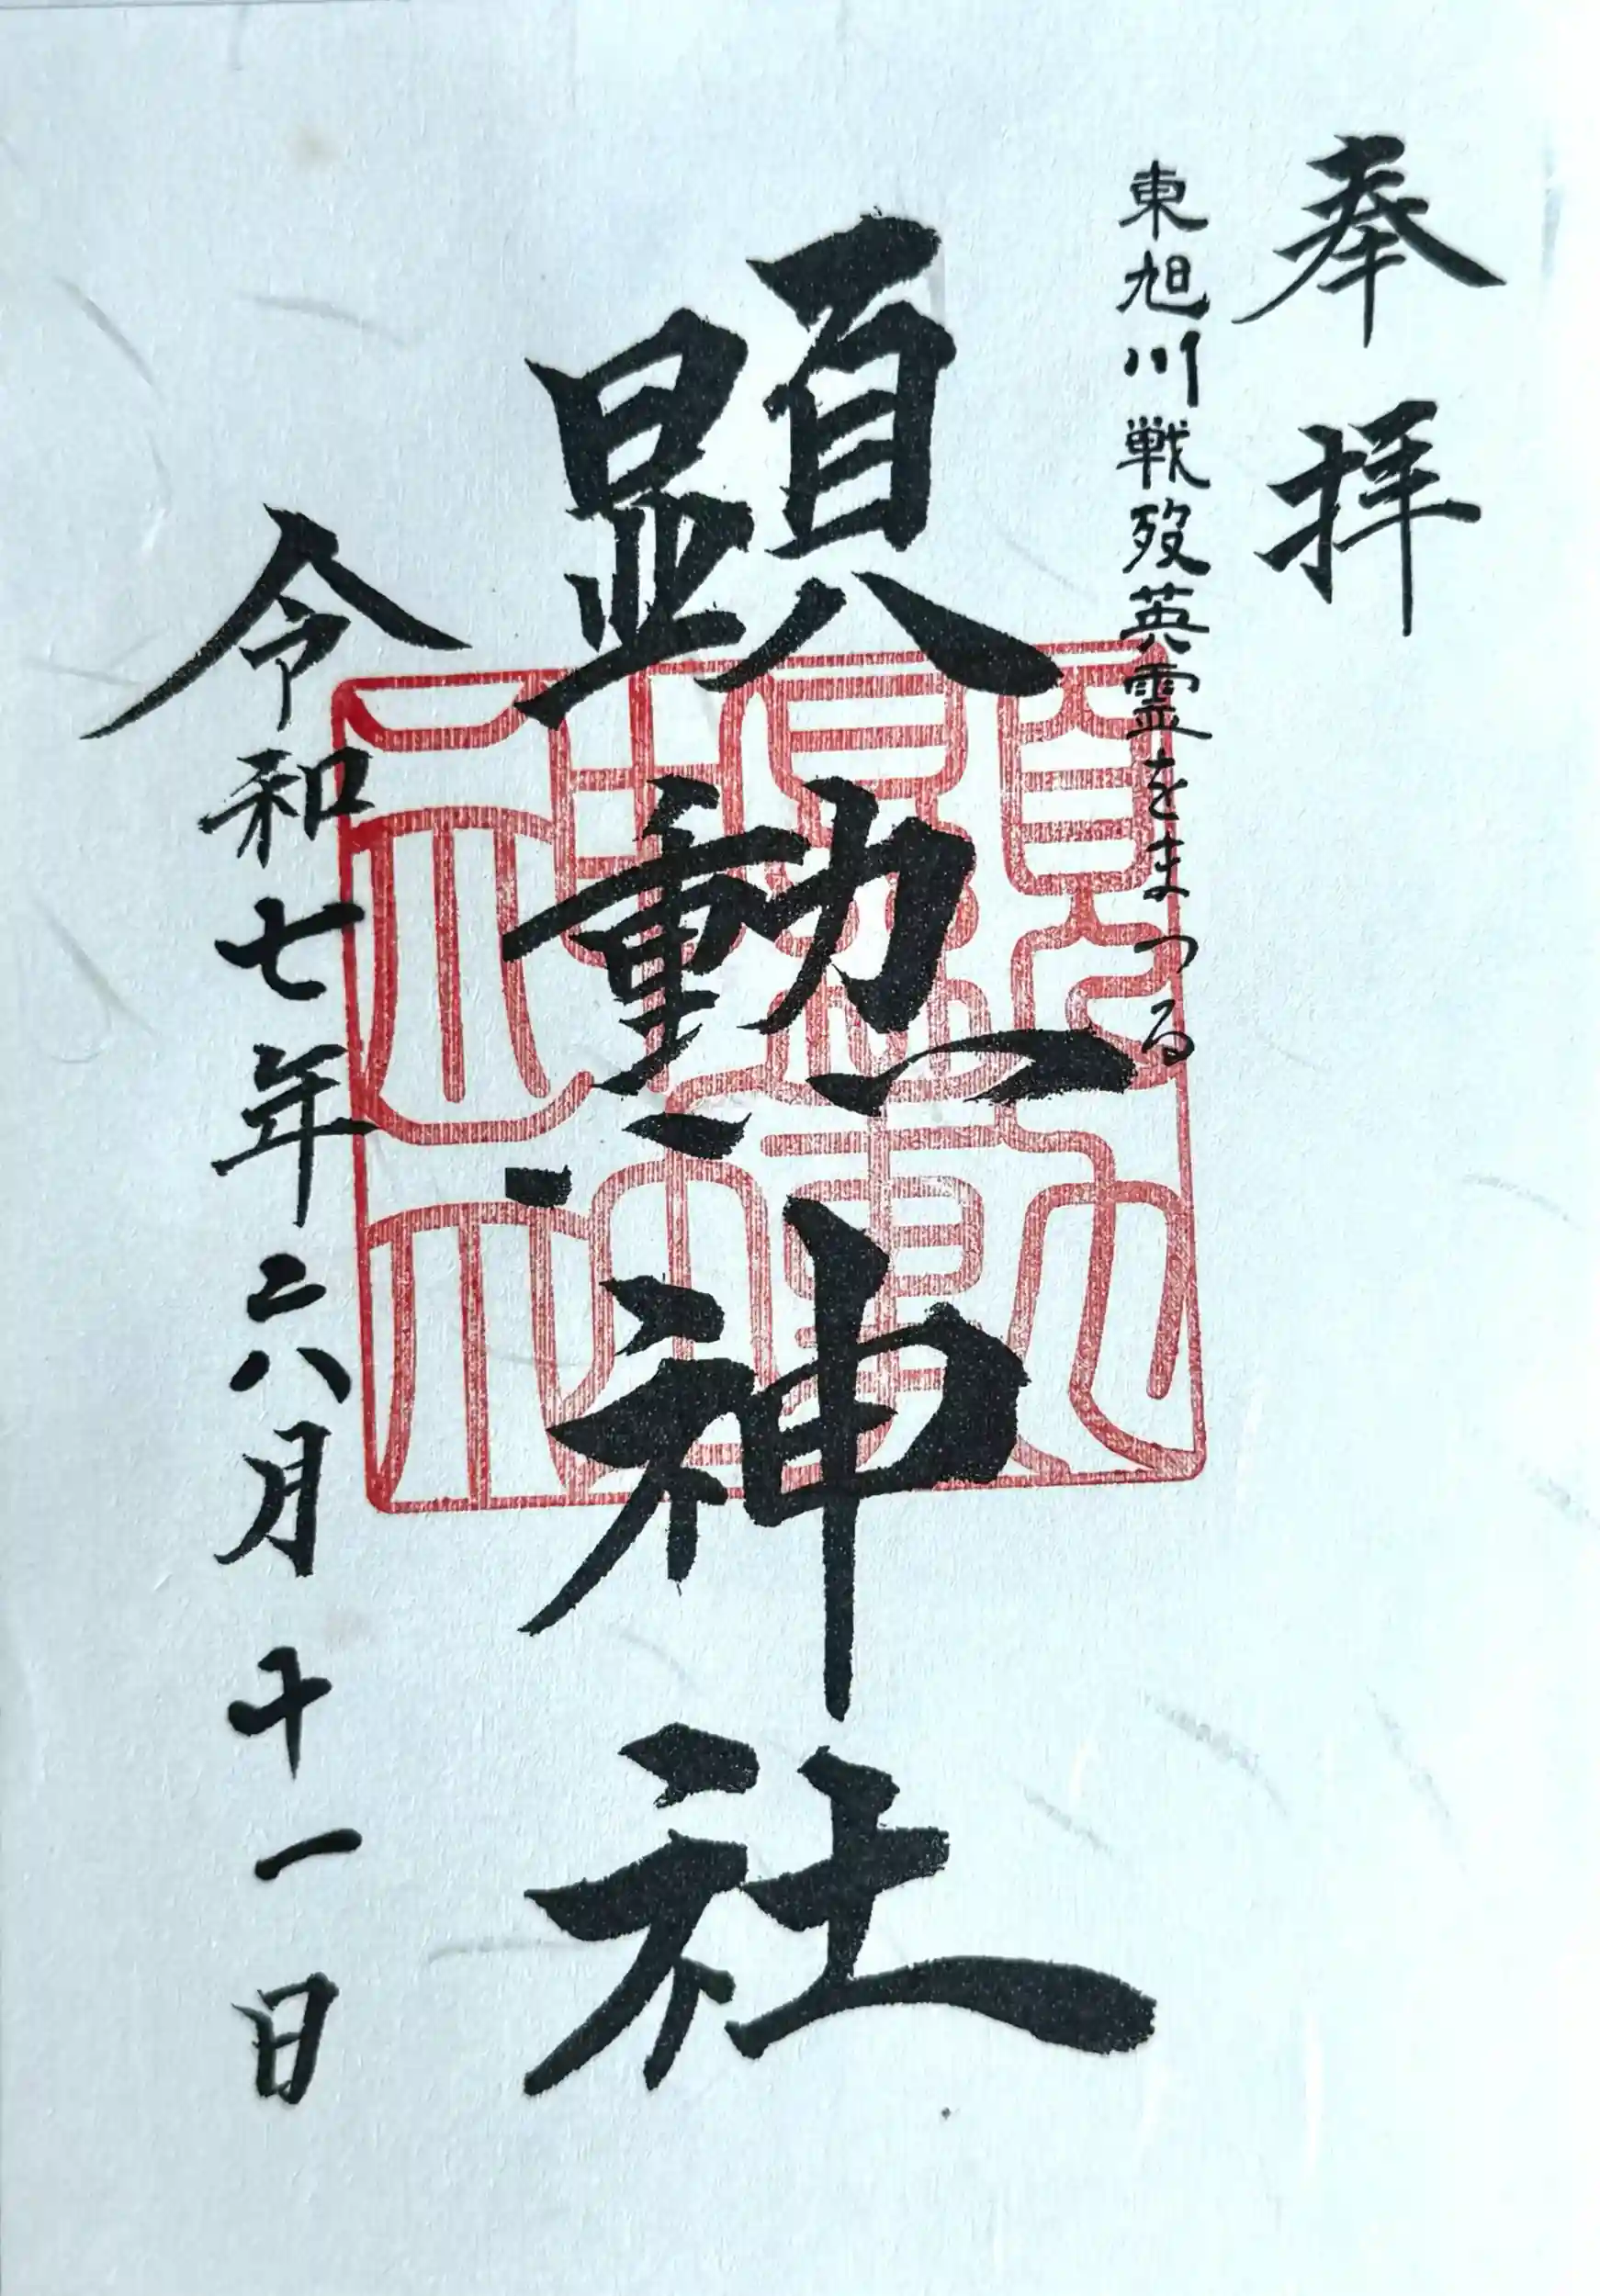 奉拝
東旭川戦歿英霊をまつる
顕勲神社
顯勲神社
令和七年六月十一日